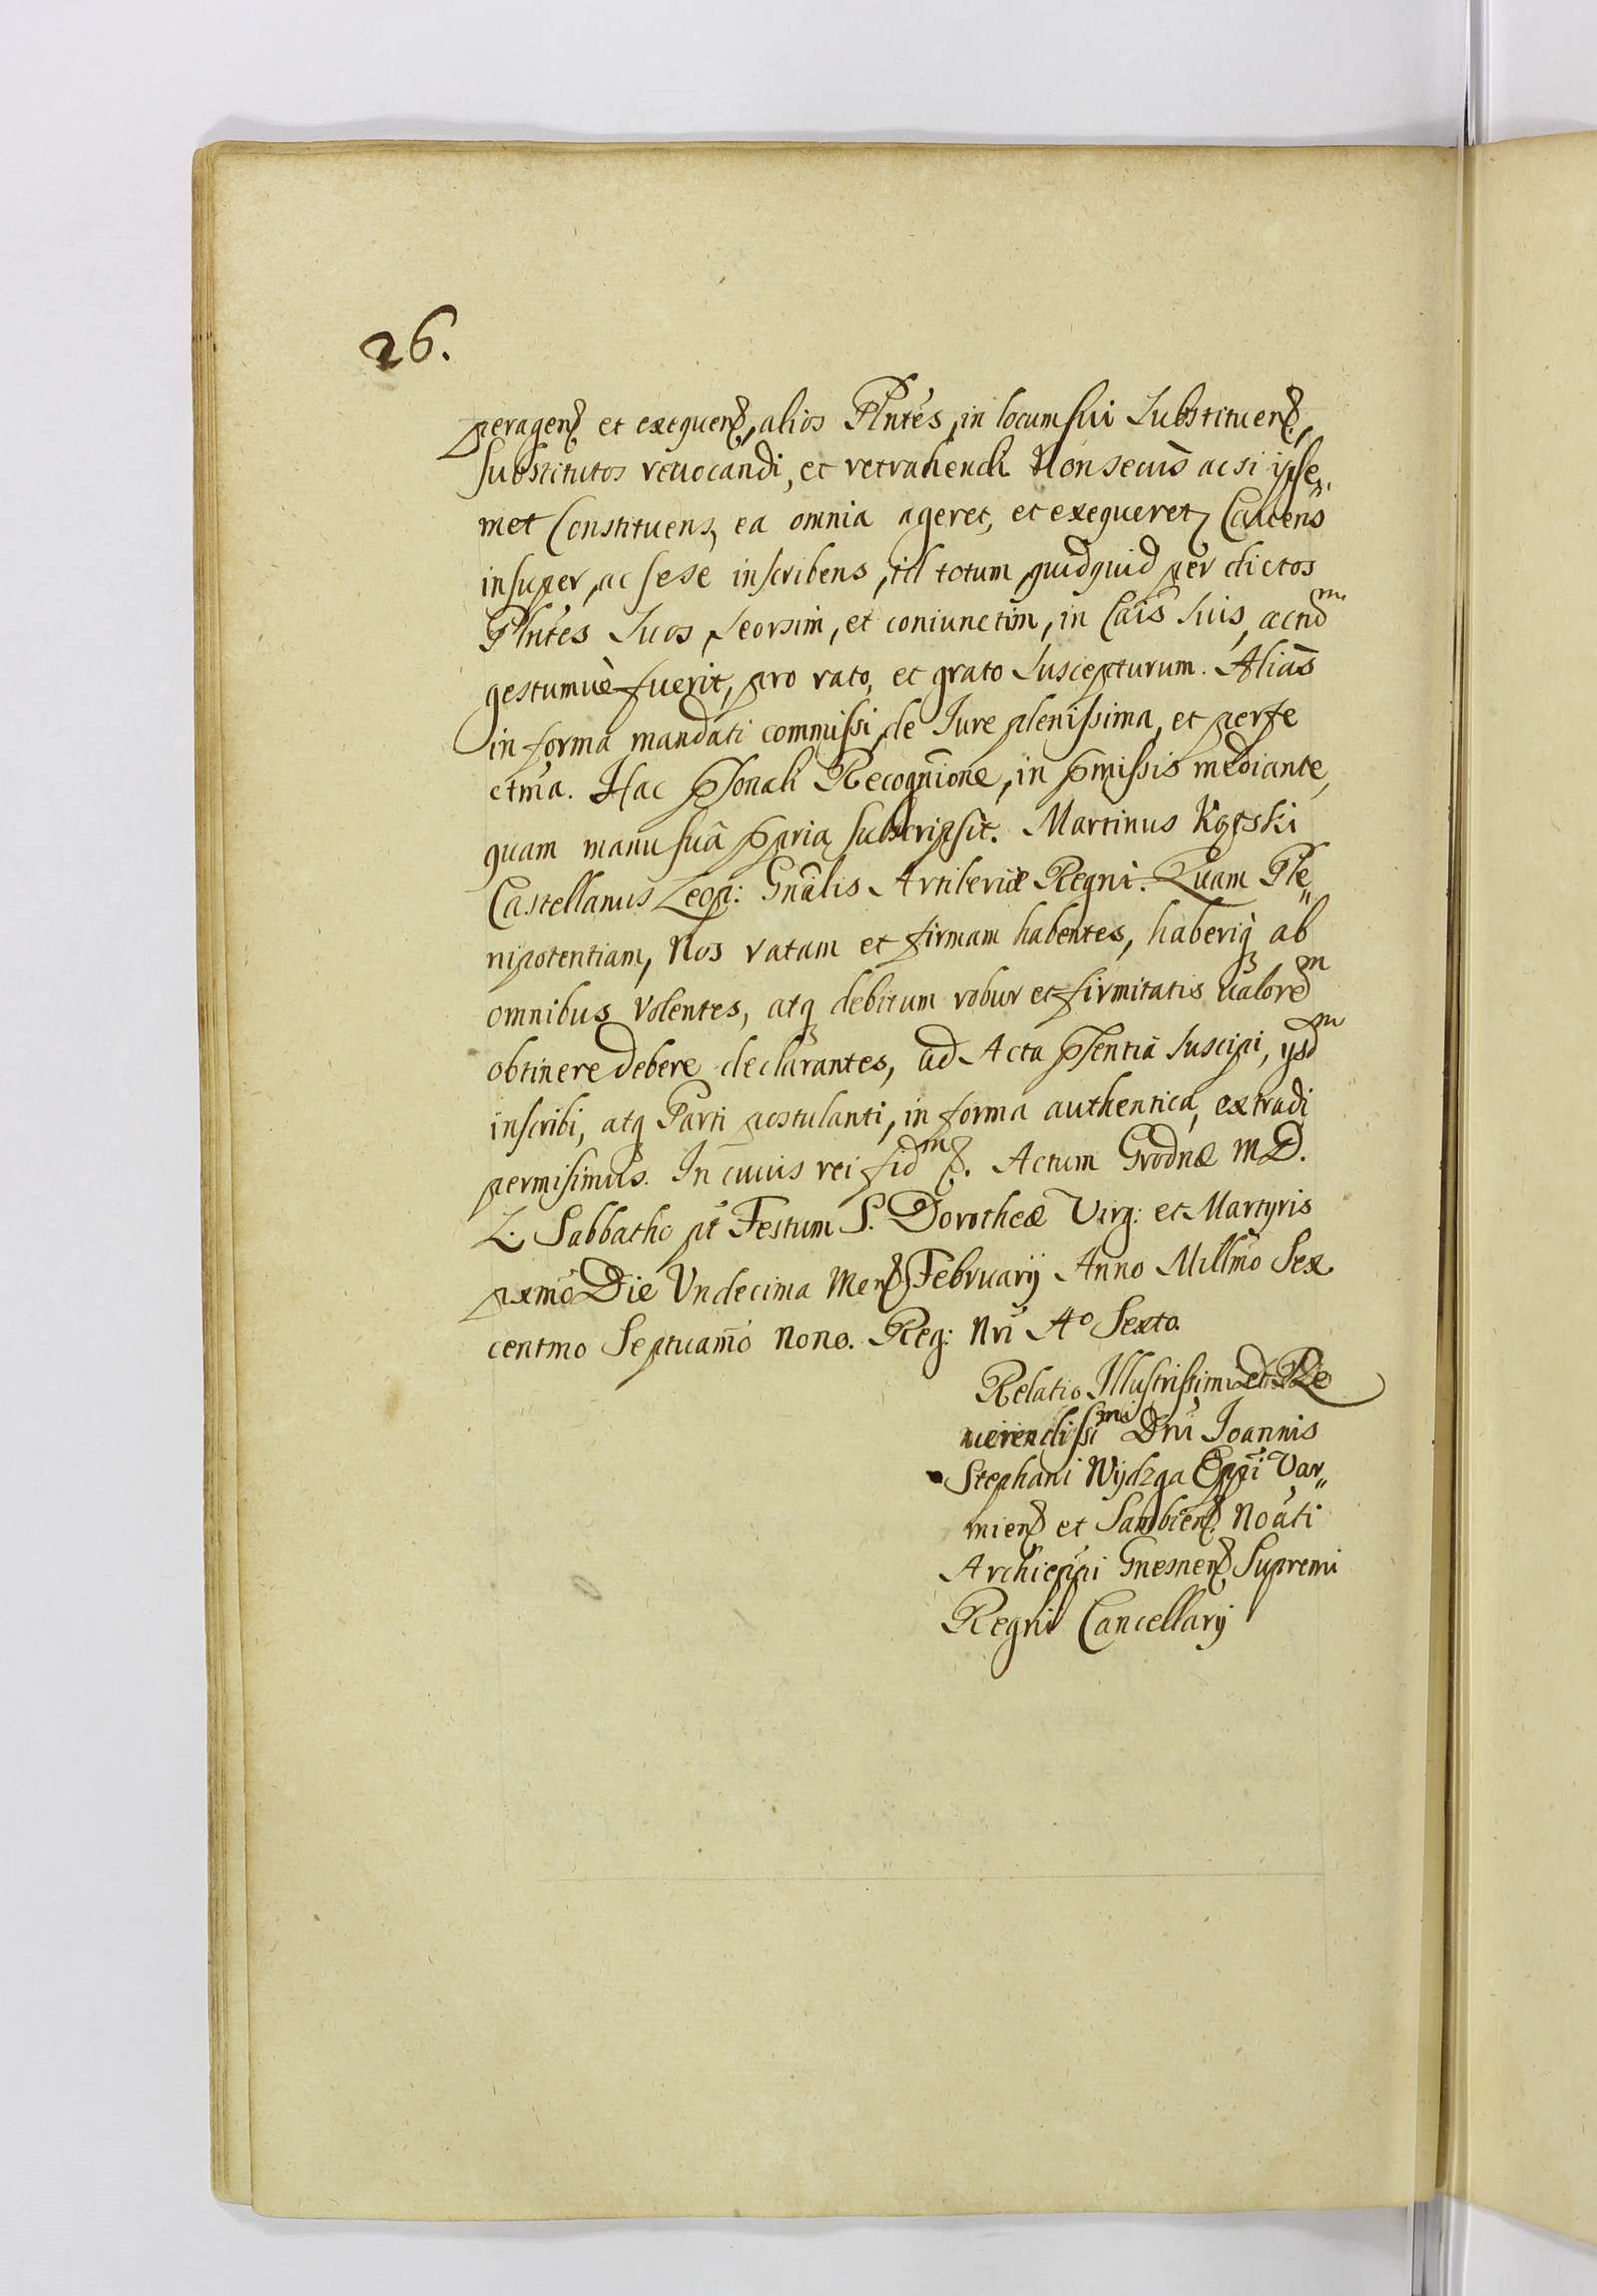 26.
peragend et exequend, alios Plntes, in locum sui Substituend,
substitutos revocandi, et retrahendi. Non secus ac si ipse„
met Constituens, ea omnia ageret, et exequeret Cavens
insuper, ac sese inscribens, id totum, quidquid per dictos
Plntes Suos, Seorsim, et coniunctim, in Cais Suis, actum
gestumuè fuerit, pro rato, et grato Suscepturum. Alias
in forma mandati commissi, de Iure plenissima, et perfe
ctma. Hac psonali Recognione, in pmissis mediante,
quam manu suâ ppria subscripsit. Martinus Kątski
Castellanus Leop: Gnâlis Artileriæ Regni. Quam Ple„
nipotentiam, Nos ratam et firmam habentes, haberiq ab
omnibus volentes, atq debitum robur et firmitatis ualorem
obtinere debere declarantes, ad Acta psentia Suscipi, ysdm
inscribi, atq Parti postulanti, in forma authentica, extradi
permisimus. In cuius rei fidm &. Actum Grodnæ M.D.
L. Sabbatho pt Festum S. Dorotheæ Virg: et Martyris
pxmo Die Undecima Mens Februarij Anno Millmo Sex
centmo Septuamo Nono. Reg: Nri Ao Sexto.
Relatio Illustrissimi et Re
uerendissimi Dni Ioannis
Stephani Wydzga Eppi Var„
miens et Sambiens. Noâti
Archieppi Gnesnens Supremi
Regni Cancellarij